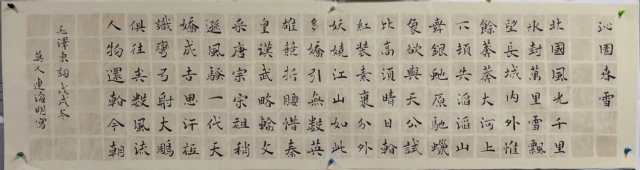 沁園春雪
北國風光千里
冰封萬里雪飄
望長城內外惟
餘莽莽大河上
下頓失滔滔山
舞銀蛇原馳蠟
象欲與天公試
比高須晴日看
紅裝素裹分外
妖嬈江山如此
多嬌引無數英
雄競折腰惜秦
皇漢武略輸文
采唐宗宋祖稍
遜風騷一代天
驕成吉思汗祗
識彎弓射大鵰
俱往矣數風流
人物還看今朝
毛澤東詞戊戌冬
英人連海明寫